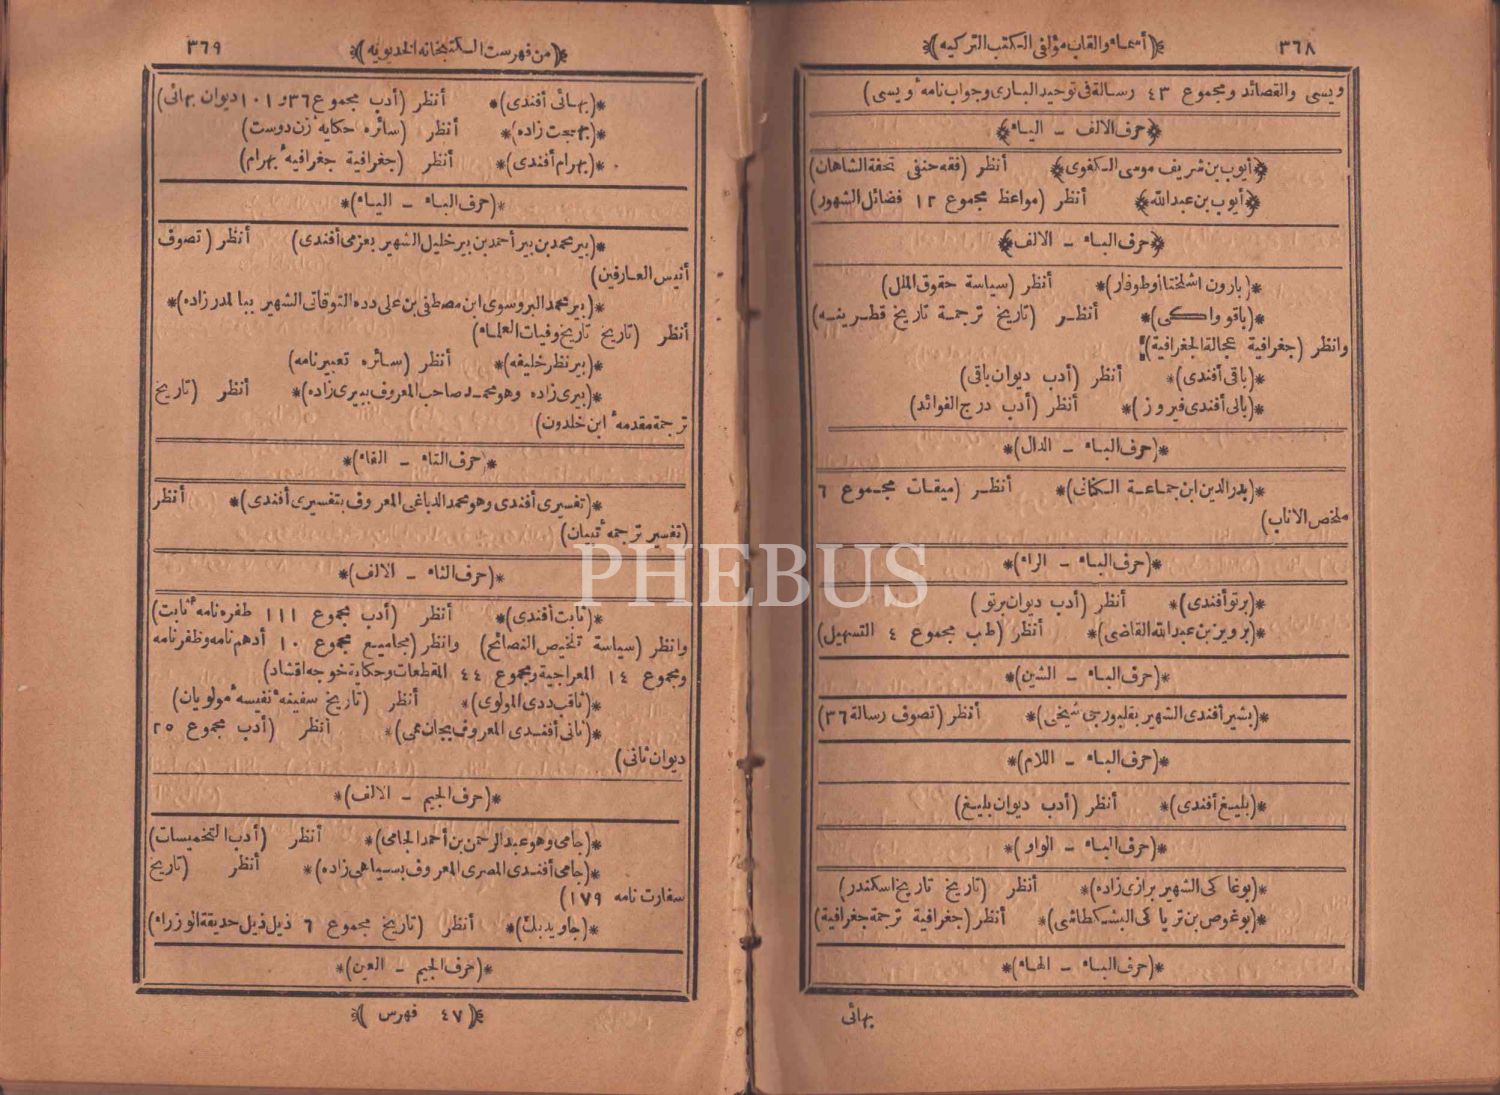 ٣٦٨
﴿أسماء والقاب مؤلفى الكتب التركيه﴾
ويسى والقصائد ومجموع ٤٣ رسالة فى توحيد البارى وجواب نامهٔ ويسى)
﴿حرف الالف ــ الياء﴾
﴿أيوب بن شريف موسى الكفوى﴾ أنظر (فقه حنفى تحفة الشاهان)
﴿أيوب بن عبدالله﴾ أنظر (مواعظ مجموع ١٢ فضائل الشهور)
﴿حرف الباء ــ الالف﴾
*(بارون اشلختا أوطوفار)* أنظر (سياسة حقوق الملل)
*(باقو واكى)* أنظر (تاريخ ترجمة تاريخ قطرينه)
وانظر (جغرافية عجالة الجغرافية)
*(باقى أفندى)* أنظر (أدب ديوان باقى)
*(بالى أفندى فيروز)* أنظر (أدب درج الفوائد)
*(حرف الباء ــ الدال)*
*(بدرالدين ابن جماعة الكنانى)* أنظر (ميقات مجموع ٦
ملخص الاناب)
*(حرف الباء ــ الراء)*
*(برتو أفندى)* أنظر (أدب ديوان برتو)
*(برويز بن عبدالله القاضى)* أنظر (طب مجموع ٤ التسهيل)
*(حرف الباء ــ الشين)*
*(بشير أفندى الشهير بقليورجى شيخى)* أنظر (تصوف رسالة ٣٦)
*(حرف الباء ــ اللام)*
*(بليغ أفندى)* أنظر (أدب ديوان بليغ)
*(حرف الباء ــ الواو)*
*(بوغا كى الشهير برازى زاده)* أنظر (تاريخ تاريخ اسكندر)
*(بوغوص بن تريا كى البشكطاشى)* أنظر (جغرافية ترجمة جغرافية)
*(حرف الباء ــ الهاء)*
بهائى
﴿من فهرست الكتبخانه الخديويه﴾
٣٦٩
*(بهائى أفندى)* أنظر (أدب مجموع ٣٦ و ١٠١ ديوان بهائى)
*(بهجت زاده)* أنظر (سائره حكايهٔ زن دوست)
*(بهرام أفندى)* أنظر (جغرافية جغرافيهٔ بهرام)
*(حرف الباء ــ الياء)*
*(بير محمد بن بير أحمد بن بير خليل الشهير بعزمى أفندى) أنظر (تصوف
أنيس العارفين)
*(بير محمد البروسوى ابن مصطفى بن على دده التوقاتى الشهير ببالدر زاده)*
أنظر (تاريخ تاريخ وفيات العلماء)
*(بير نظر خليفه)* أنظر (سائره تعبيرنامه)
*(بيرى زاده وهو محمد صاحب المعروف ببيرى زاده)* أنظر (تاريخ
ترجمة مقدمهٔ ابن خلدون)
*(حرف التاء ــ الفاء)*
*(تفسيرى أفندى وهو محمد الدباغى المعروف بتفسيرى أفندى)* أنظر
(تفسير ترجمهٔ تبيان)
*(حرف الثاء ــ الالف)*
*(ثابت أفندى)* أنظر (أدب مجموع ١١١ ظفره نامهٔ ثابت)
وانظر (سياسة تلخيص النصائح) وانظر (مجاميع مجموع ١٠ أدهم نامه وظفر نامه
ومجموع ١٤ المعراجية ومجموع ٤٤ المقطعات وحكاية خوجه اقشاد)
*(ثاقب ددى المولوى)* أنظر (تاريخ سفينهٔ نفيسهٔ مولويان)
*(ثانى أفندى المعروف بجان ممى)* أنظر (أدب مجموع ٢٥
ديوان ثانى)
*(حرف الجيم ــ الالف)*
*(جامى وهو عبد الرحمن بن أحمد الجامى)* أنظر (أدب التخميسات)
*(جامى أفندى المصرى المعروف بسياهى زاده)* أنظر (تاريخ
سفارت نامه ١٧٩)
*(جاويد بك)* أنظر (تاريخ مجموع ٦ ذيل ذيل حديقة الوزراء)
*(حرف الجيم ــ العين)*
﴿٤٧ فهرس﴾
PHEBUS